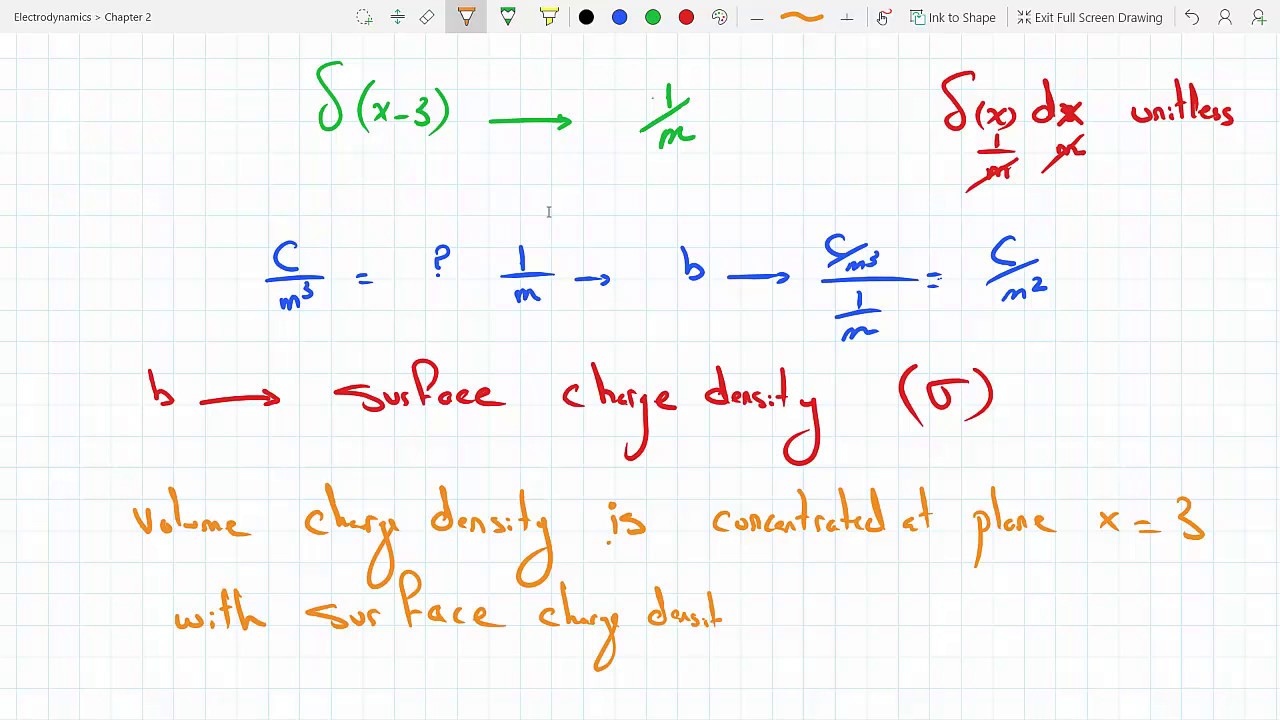 Electrodynamics > Chapter 2
Ink to Shape
Exit Full Screen Drawing
δ(x-3) → 1/m
δ(x) dx unitless
1/m m
C/m³ = ? 1/m → b → C/m³ / 1/m = C/m²
b → surface charge density (σ)
volume charge density is concentrated at plane x = 3
with surface charge densit